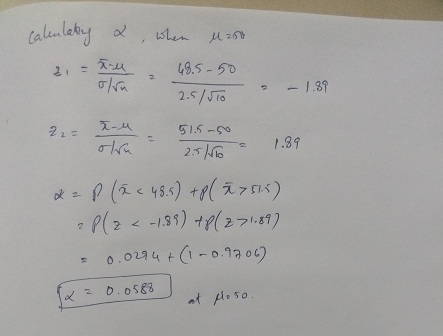 Calculating α, when μ=50
z₁ = x̄-μ / σ/√n = 48.5-50 / 2.5/√10 = -1.89
z₂ = x̄-μ / σ/√n = 51.5-50 / 2.5/√10 = 1.89
α = P(x̄ < 48.5) + P(x̄ > 51.5)
= P(z < -1.89) + P(z > 1.89)
= 0.0294 + (1-0.9706)
α = 0.0588 at μ=50.